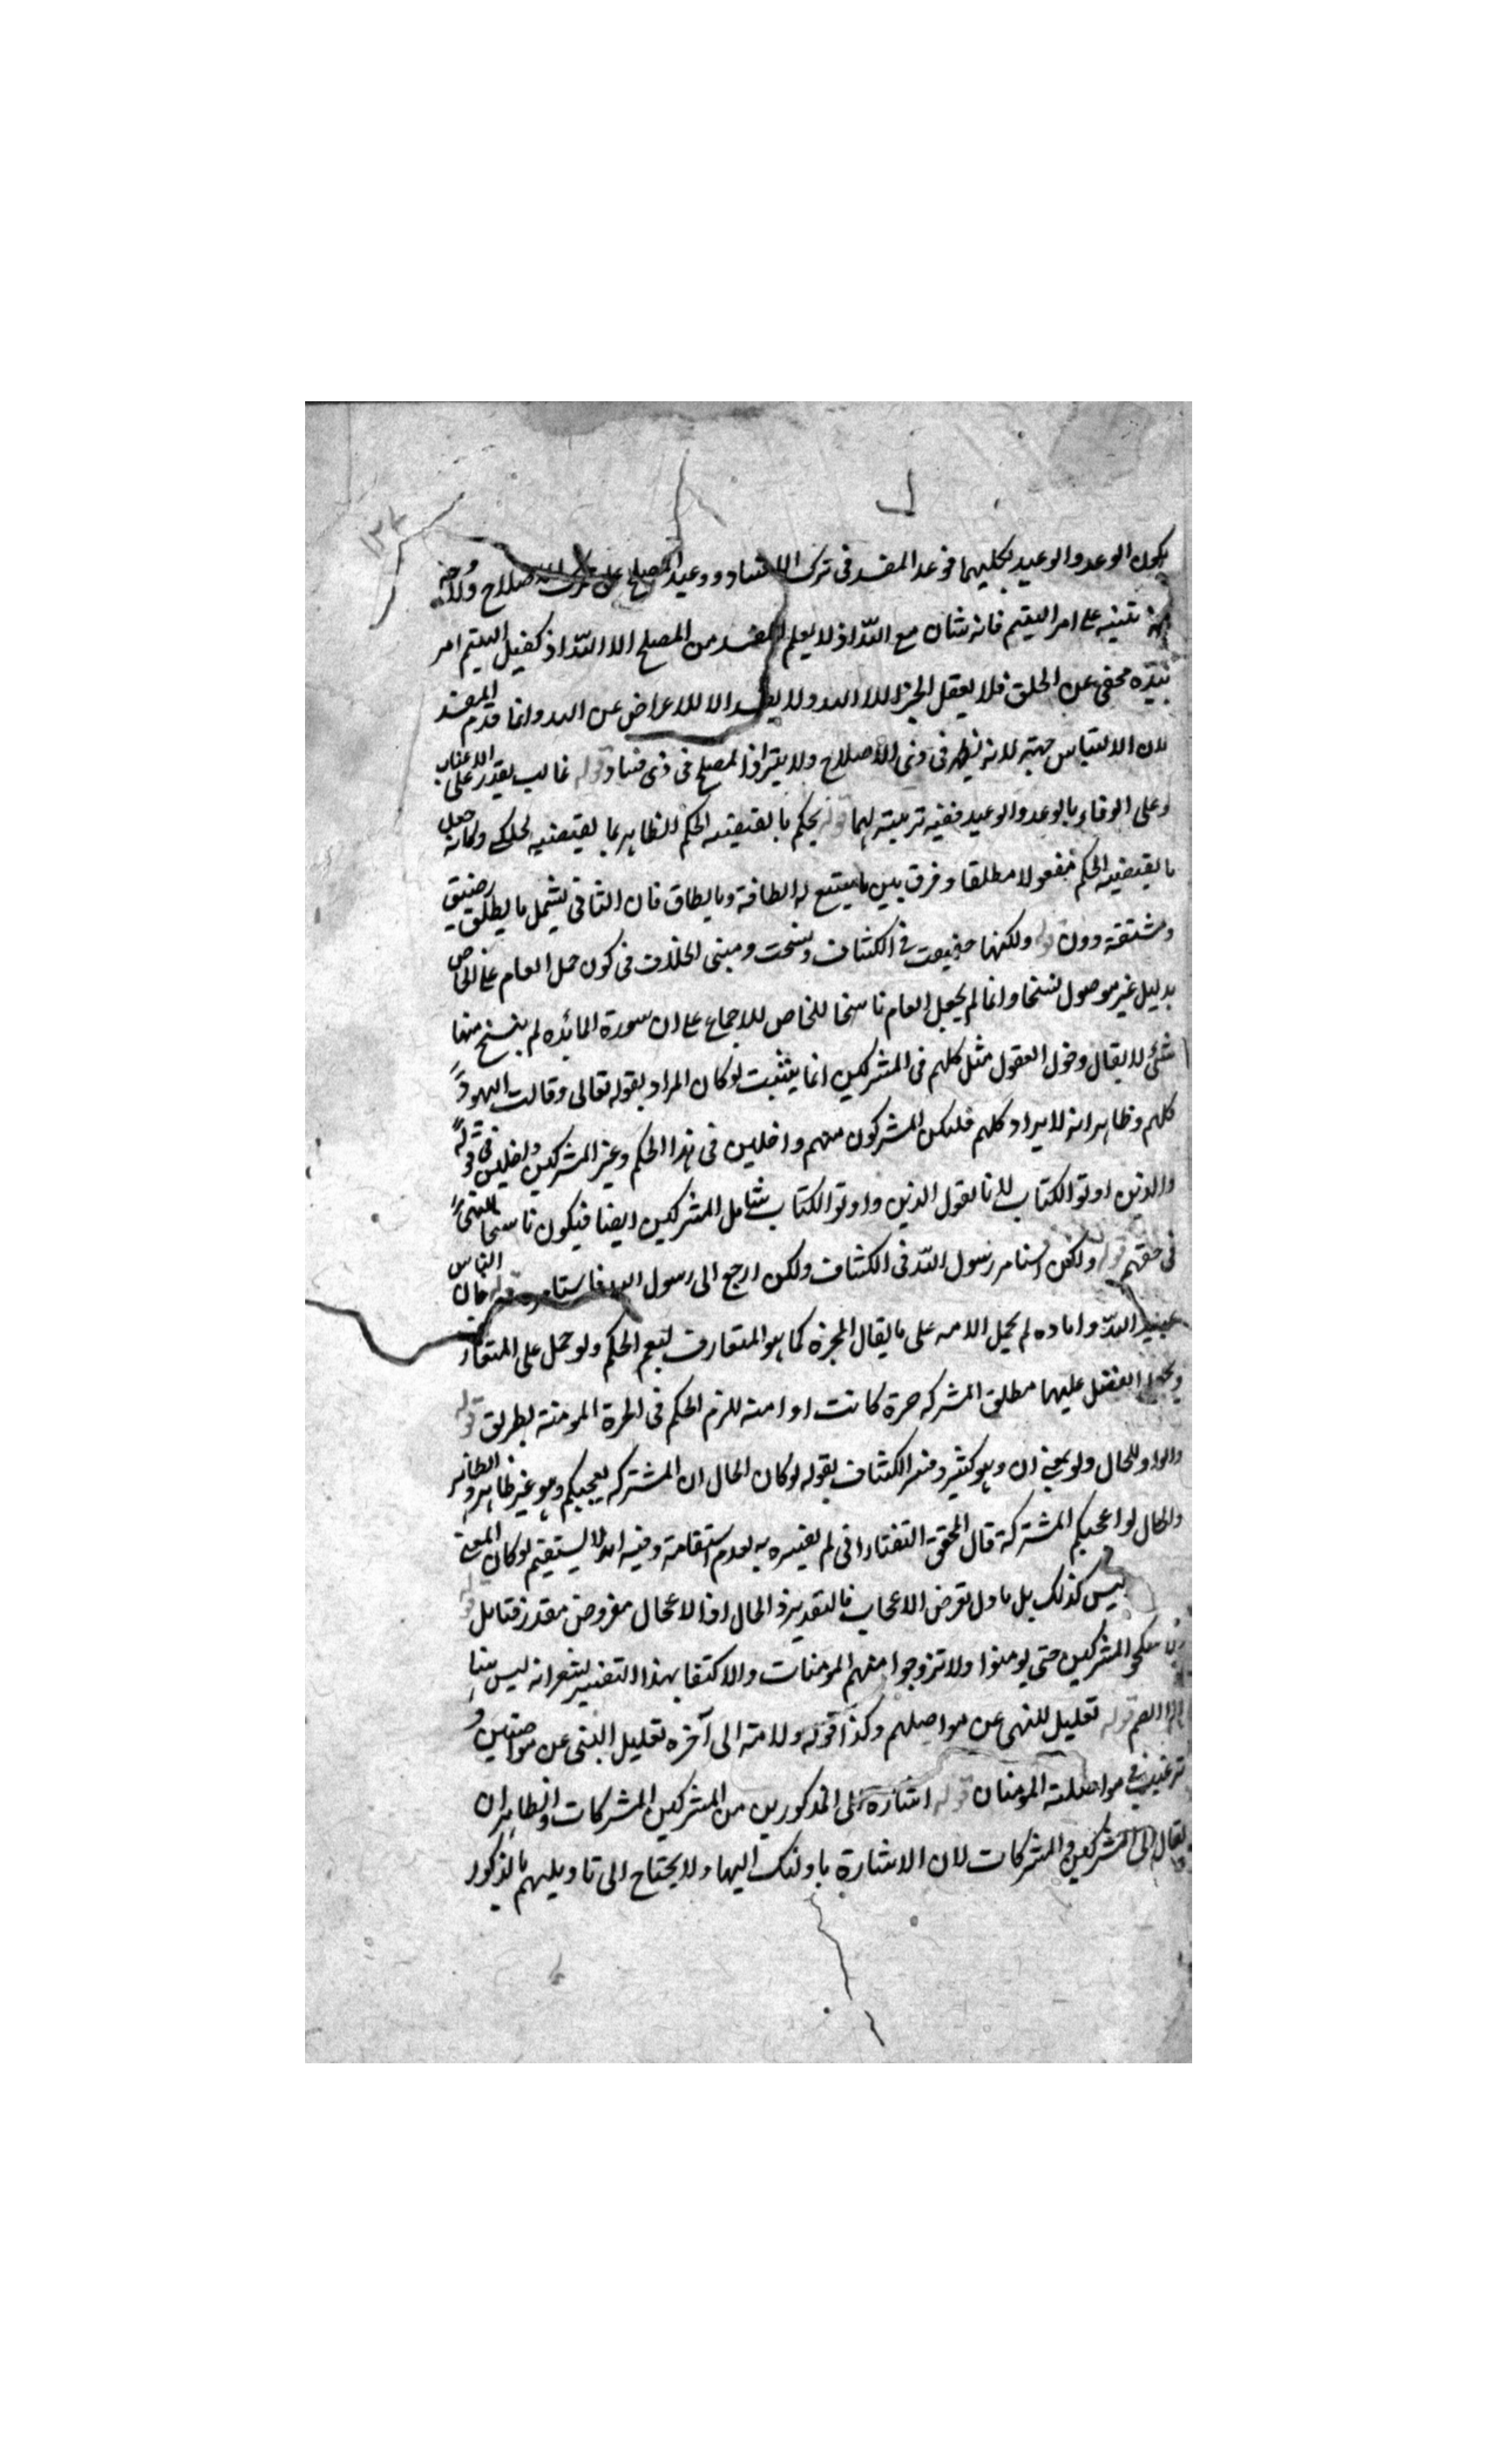 يكون الوعد والوعيد لكليهما فوعد المفسد فى ترك الافساد ووعيد المصلح على ترك الاصلاح ولا وجه
تنبيه على امر اليتيم فانه شان مع الله اذ لا يعلم المفسد من المصلح الا الله اذ كفيل اليتيم امر
مخفى عن الخلق فلا يعقل الجزا الا الله ولا الا للاعراض عن الله وانما قدم المفسد
لان الالتباس جهته لانه يظهر فى ذى الاصلاح ولا يتراى المصلح فى ذى فساد قوله غالب يقدر على الاعنات
وعلى الوفاء بالوعد والوعيد ففيه تربيته لهما قوله يحكم ما يقتضيه الحكم الظاهر بما يقتضيه لحكمه وكانه جعل
ما يقتضيه الحكم مفعولا مطلقا وفرق بين ما يتسع له الطاقة وما يطاق فان الثانى يشمل ما يطلق بضيق
ومشقة دون قوله ولكنها خصصت فى الكشاف ونسخت ومبنى الخلاف فى كون حمل العام على الخاص
بدليل غير موصول نسخا وانما لم يجعل العام ناسخا للخاص للاجماع على ان سورة المائده لم ينسخ منها
شئ لا يقال دخول العقول مثل كلهم فى المشركين انما يثبت لوكان المراد بقوله تعالى وقالت اليهود
كلهم وظاهر انه لا يراد كلهم فليكن المشركون منهم داخلين فى هذا الحكم وغير المشركين داخلين فى قوله
والذين اوتوا الكتاب لانا نقول الذين واوتوا الكتاب شامل المشركين ايضا فيكون ناسخا للنهى
فى حقهم قوله ولكن استامر رسول الله فى الكشاف ولكن ارجع الى رسول الله فاستامره قوله فان الناس
عبيد الله واماده لم يحمل الامه على ما يقال الحرة كما هو المتعارف ليعم الحكم ولو حمل على المتعارف
ويجعل الفضل عليهما مطلق المشركه حرة كانت او امة للزم الحكم فى الحرة المومنة بطريق قوله
والواو للحال ولو بمعنى ان وهو كثير وفسر الكشاف بقوله لوكان الحال ان المشركه يعجبكم وهو غير ظاهر والظاهر
والحال لو اعجبكم المشتركة قال المحقق التفتازانى لم يفسره به لعدم استقامة وفيه انه لا يستقيم لوكان المعنى
ليس كذلك بل ما دل تعرض الاعجاب فالتقدير والحال ان الاعجال مفروض مقدر فتامل قوله
ولا تنكحوا المشركين حتى يومنوا ولا تزوجوا منهم المومنات والاكتفا بهذا التفسير يشعر انه ليس
قوله تعليل للنهى عن مواصلهم وكذا قوله ولامة الى آخره تعليل النهى عن مواصلتهن و
ترغيب فى مواصلة المومنان قوله اشارة الى المذكورين من المشركين المشركات والظاهر ان
يقال الى المشركين والمشركات لان الاشارة باولئك اليها ولا يحتاج الى تاويلهم بالمذكور